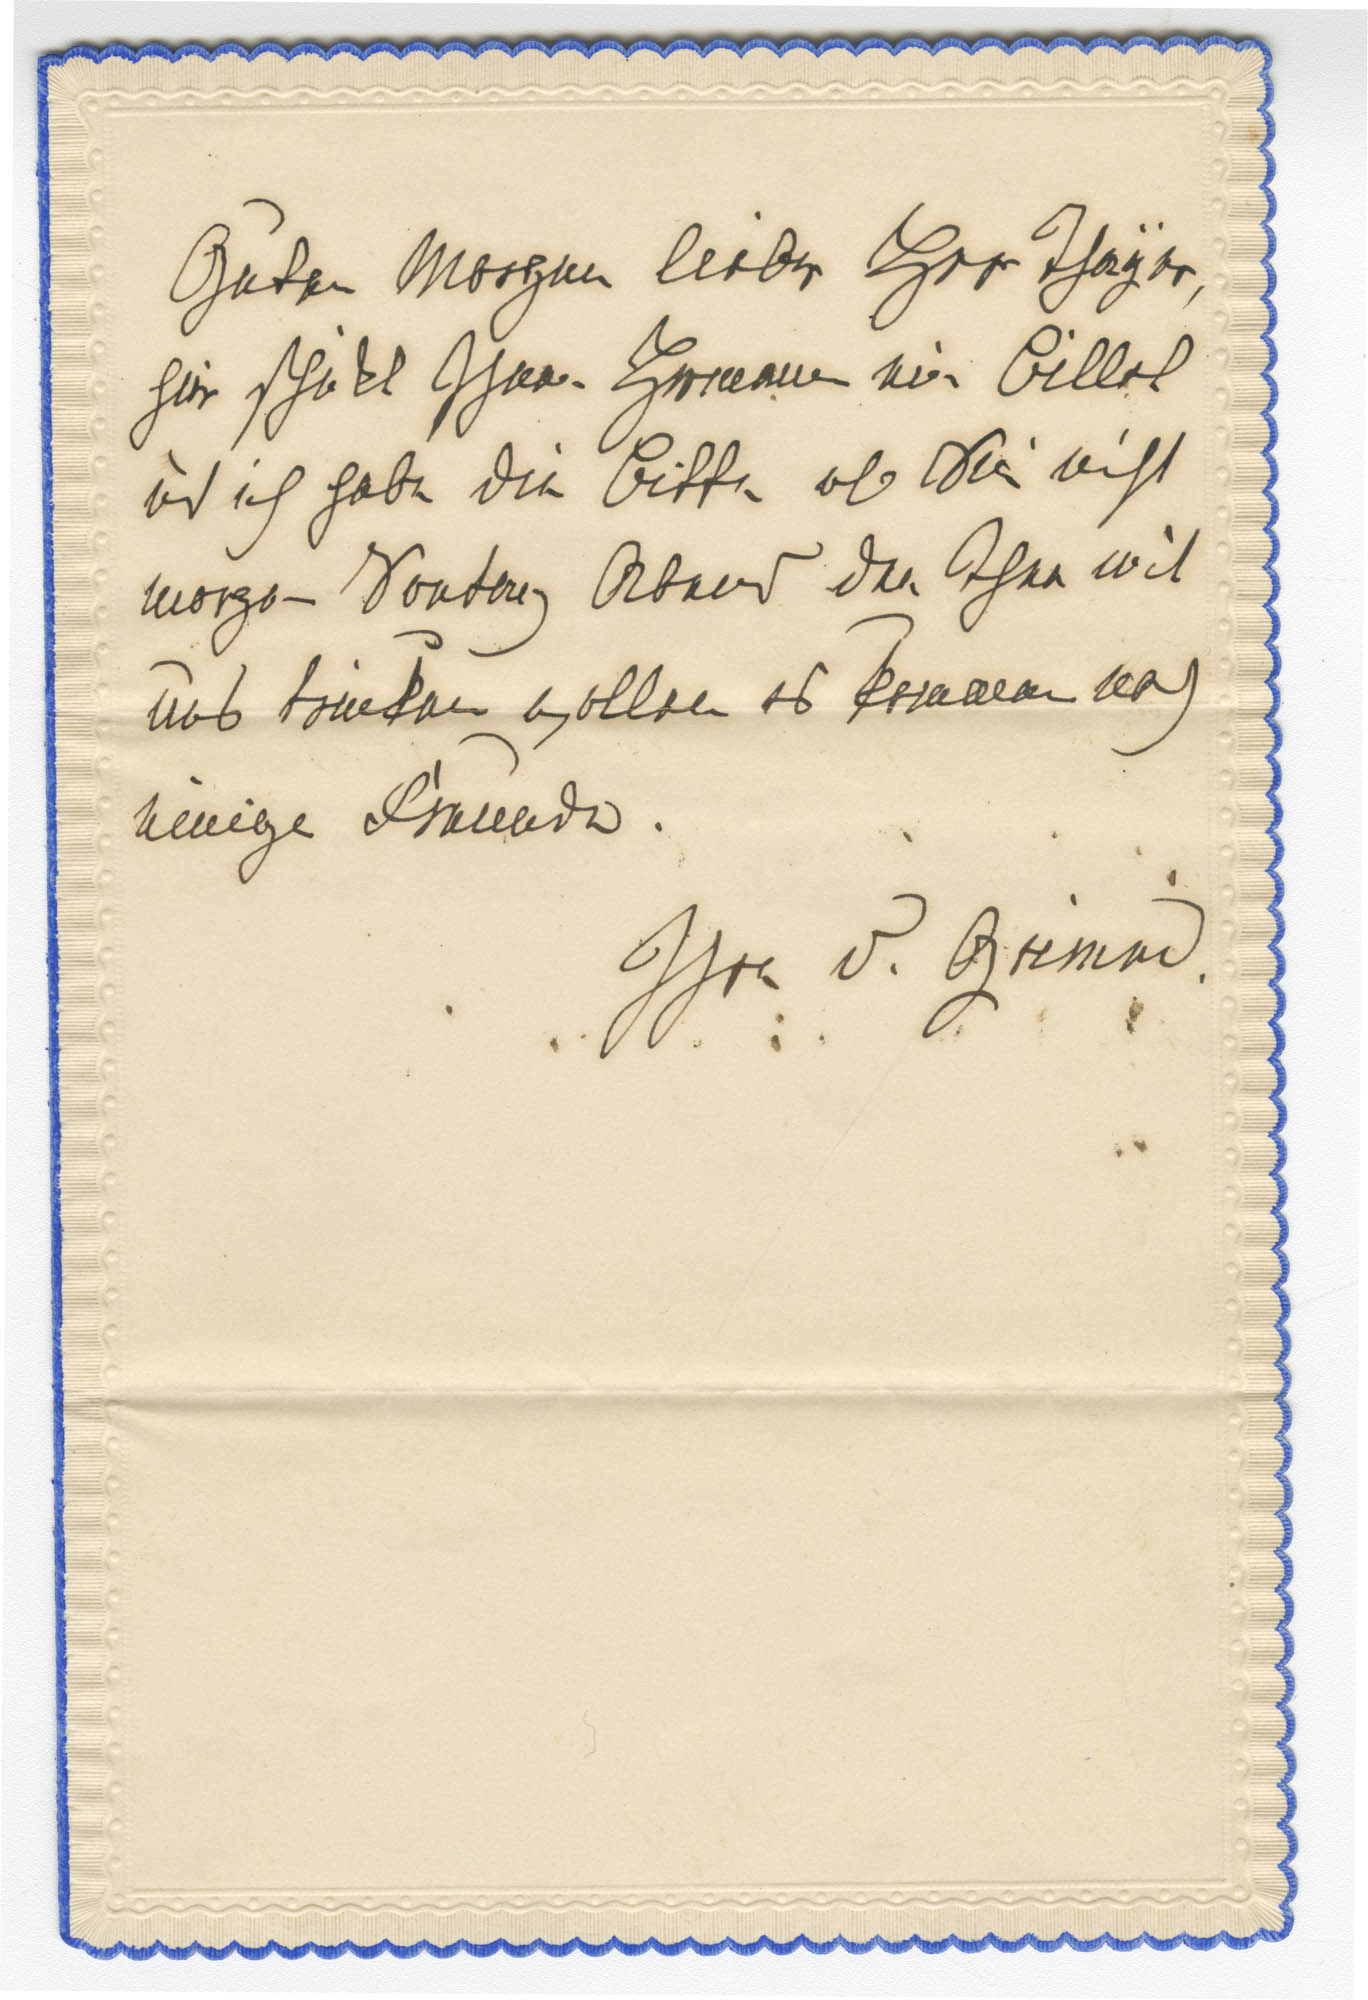 Guten Morgen lieber Herr Thayer,
hier schickt Ihnen Hermann ein Billet
und ich habe die Bitte ob Sie nicht
morgen Sontag Abend den Thee mit
uns trinken wollen es kommen noch
einige Freunde.
Ihre G. v. Grimm.